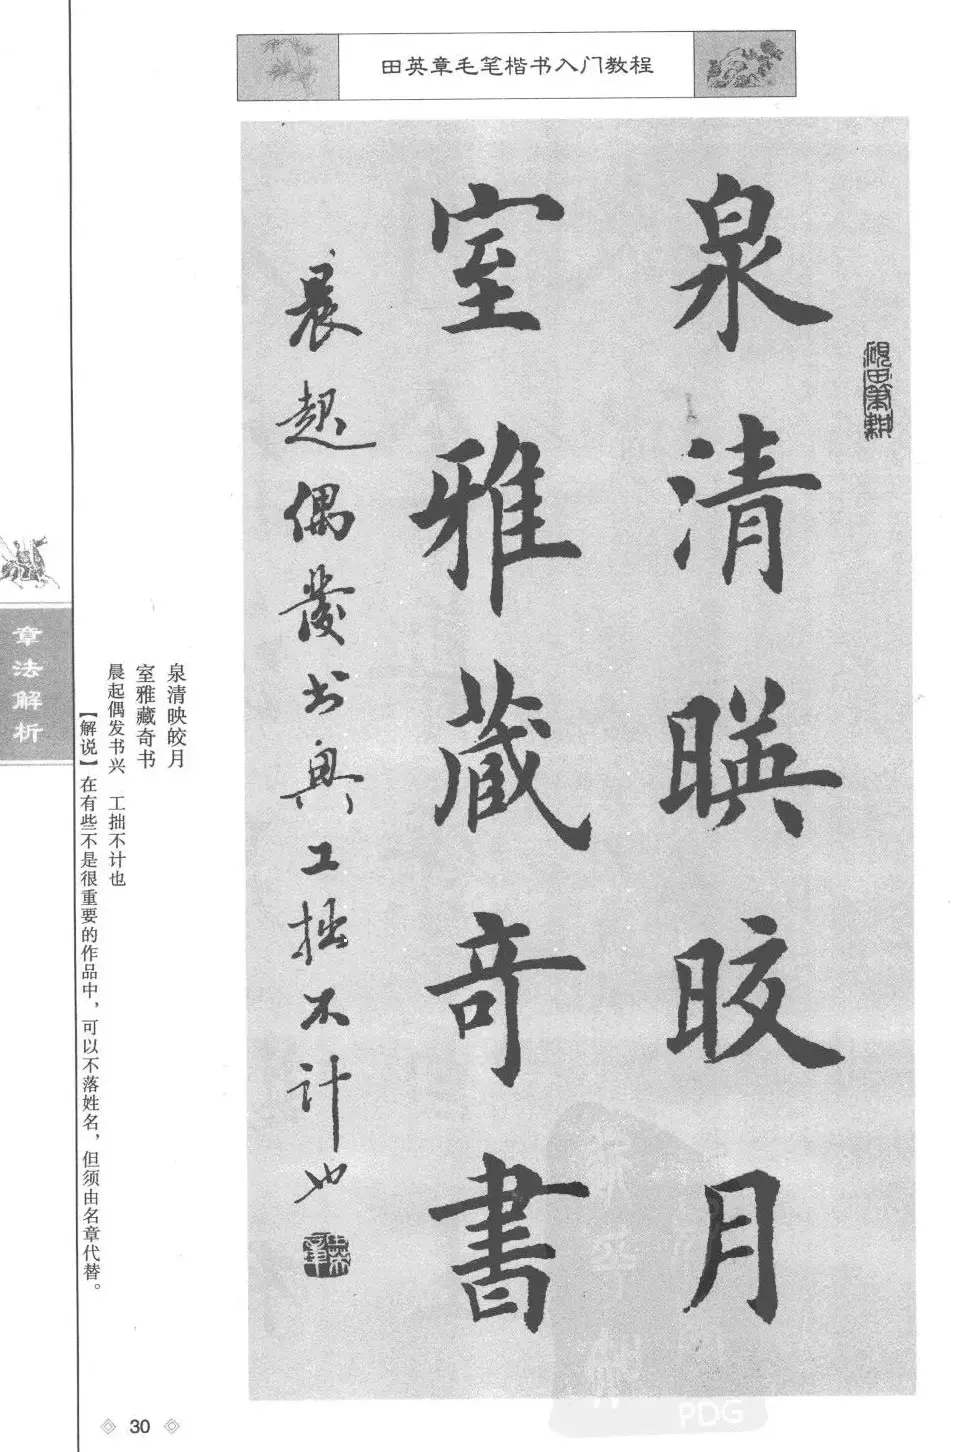 田英章毛笔楷书入门教程
泉清暎晈月
室雅蔵奇書
晨起偶發书興工拙不计也
泉清映皎月
室雅藏奇书
晨起偶发书兴 工拙不计也
【解说】在有些不是很重要的作品中，可以不落姓名，但须由名章代替。
章法解析
30
PDG